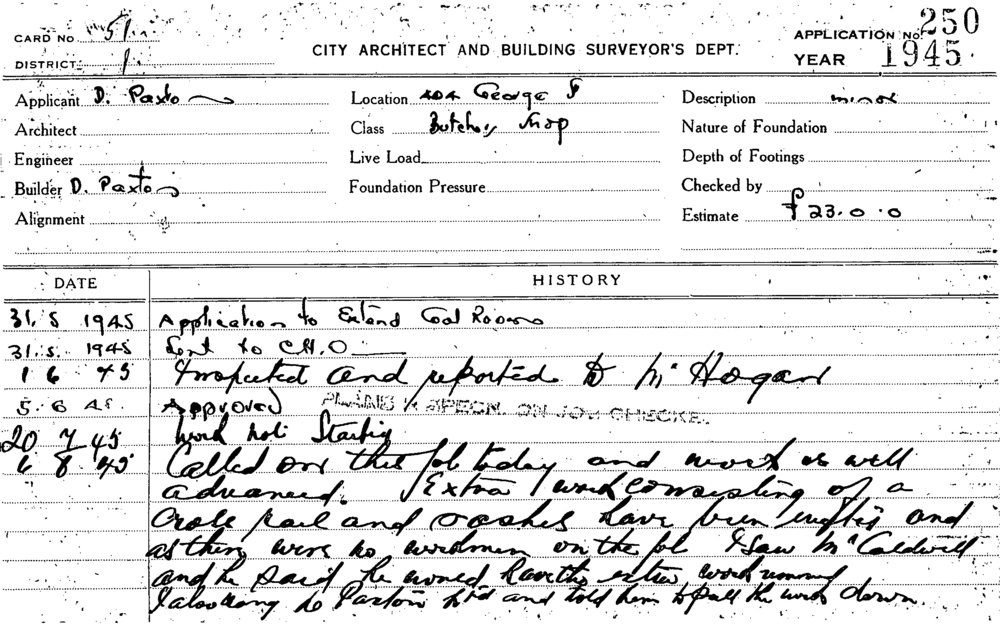 CARD No 51
DISTRICT: 1
CITY ARCHITECT AND BUILDING SURVEYOR'S DEPT.
APPLICATION No. 250
YEAR 1945
Applicant D. Paxton
Location 404 George St
Description minor
Architect
Class Butchers Shop
Nature of Foundation
Engineer
Live Load
Depth of Footings
Builder D. Paxton
Foundation Pressure
Checked by
Alignment
Estimate £23.0.0
DATE HISTORY
31.5 1945 Application to Extend Cool Rooms
31.5. 1945 Sent to C.H.O
1 6 45 Inspected and reported to Mr Hogan
5.6.45 Approved PLANS & SPECN. ON JOB CHECKE
20 7 45 Work not Starting
6 8 45 Called on this job today and work is well
advanced. Extra work consisting of a
rail and sashes have been and
as there were no workmen on the job I saw Mr Caldwell
and he said he would have the extra work removed
I also rang Paxton Ltd and told them to pull the work down.